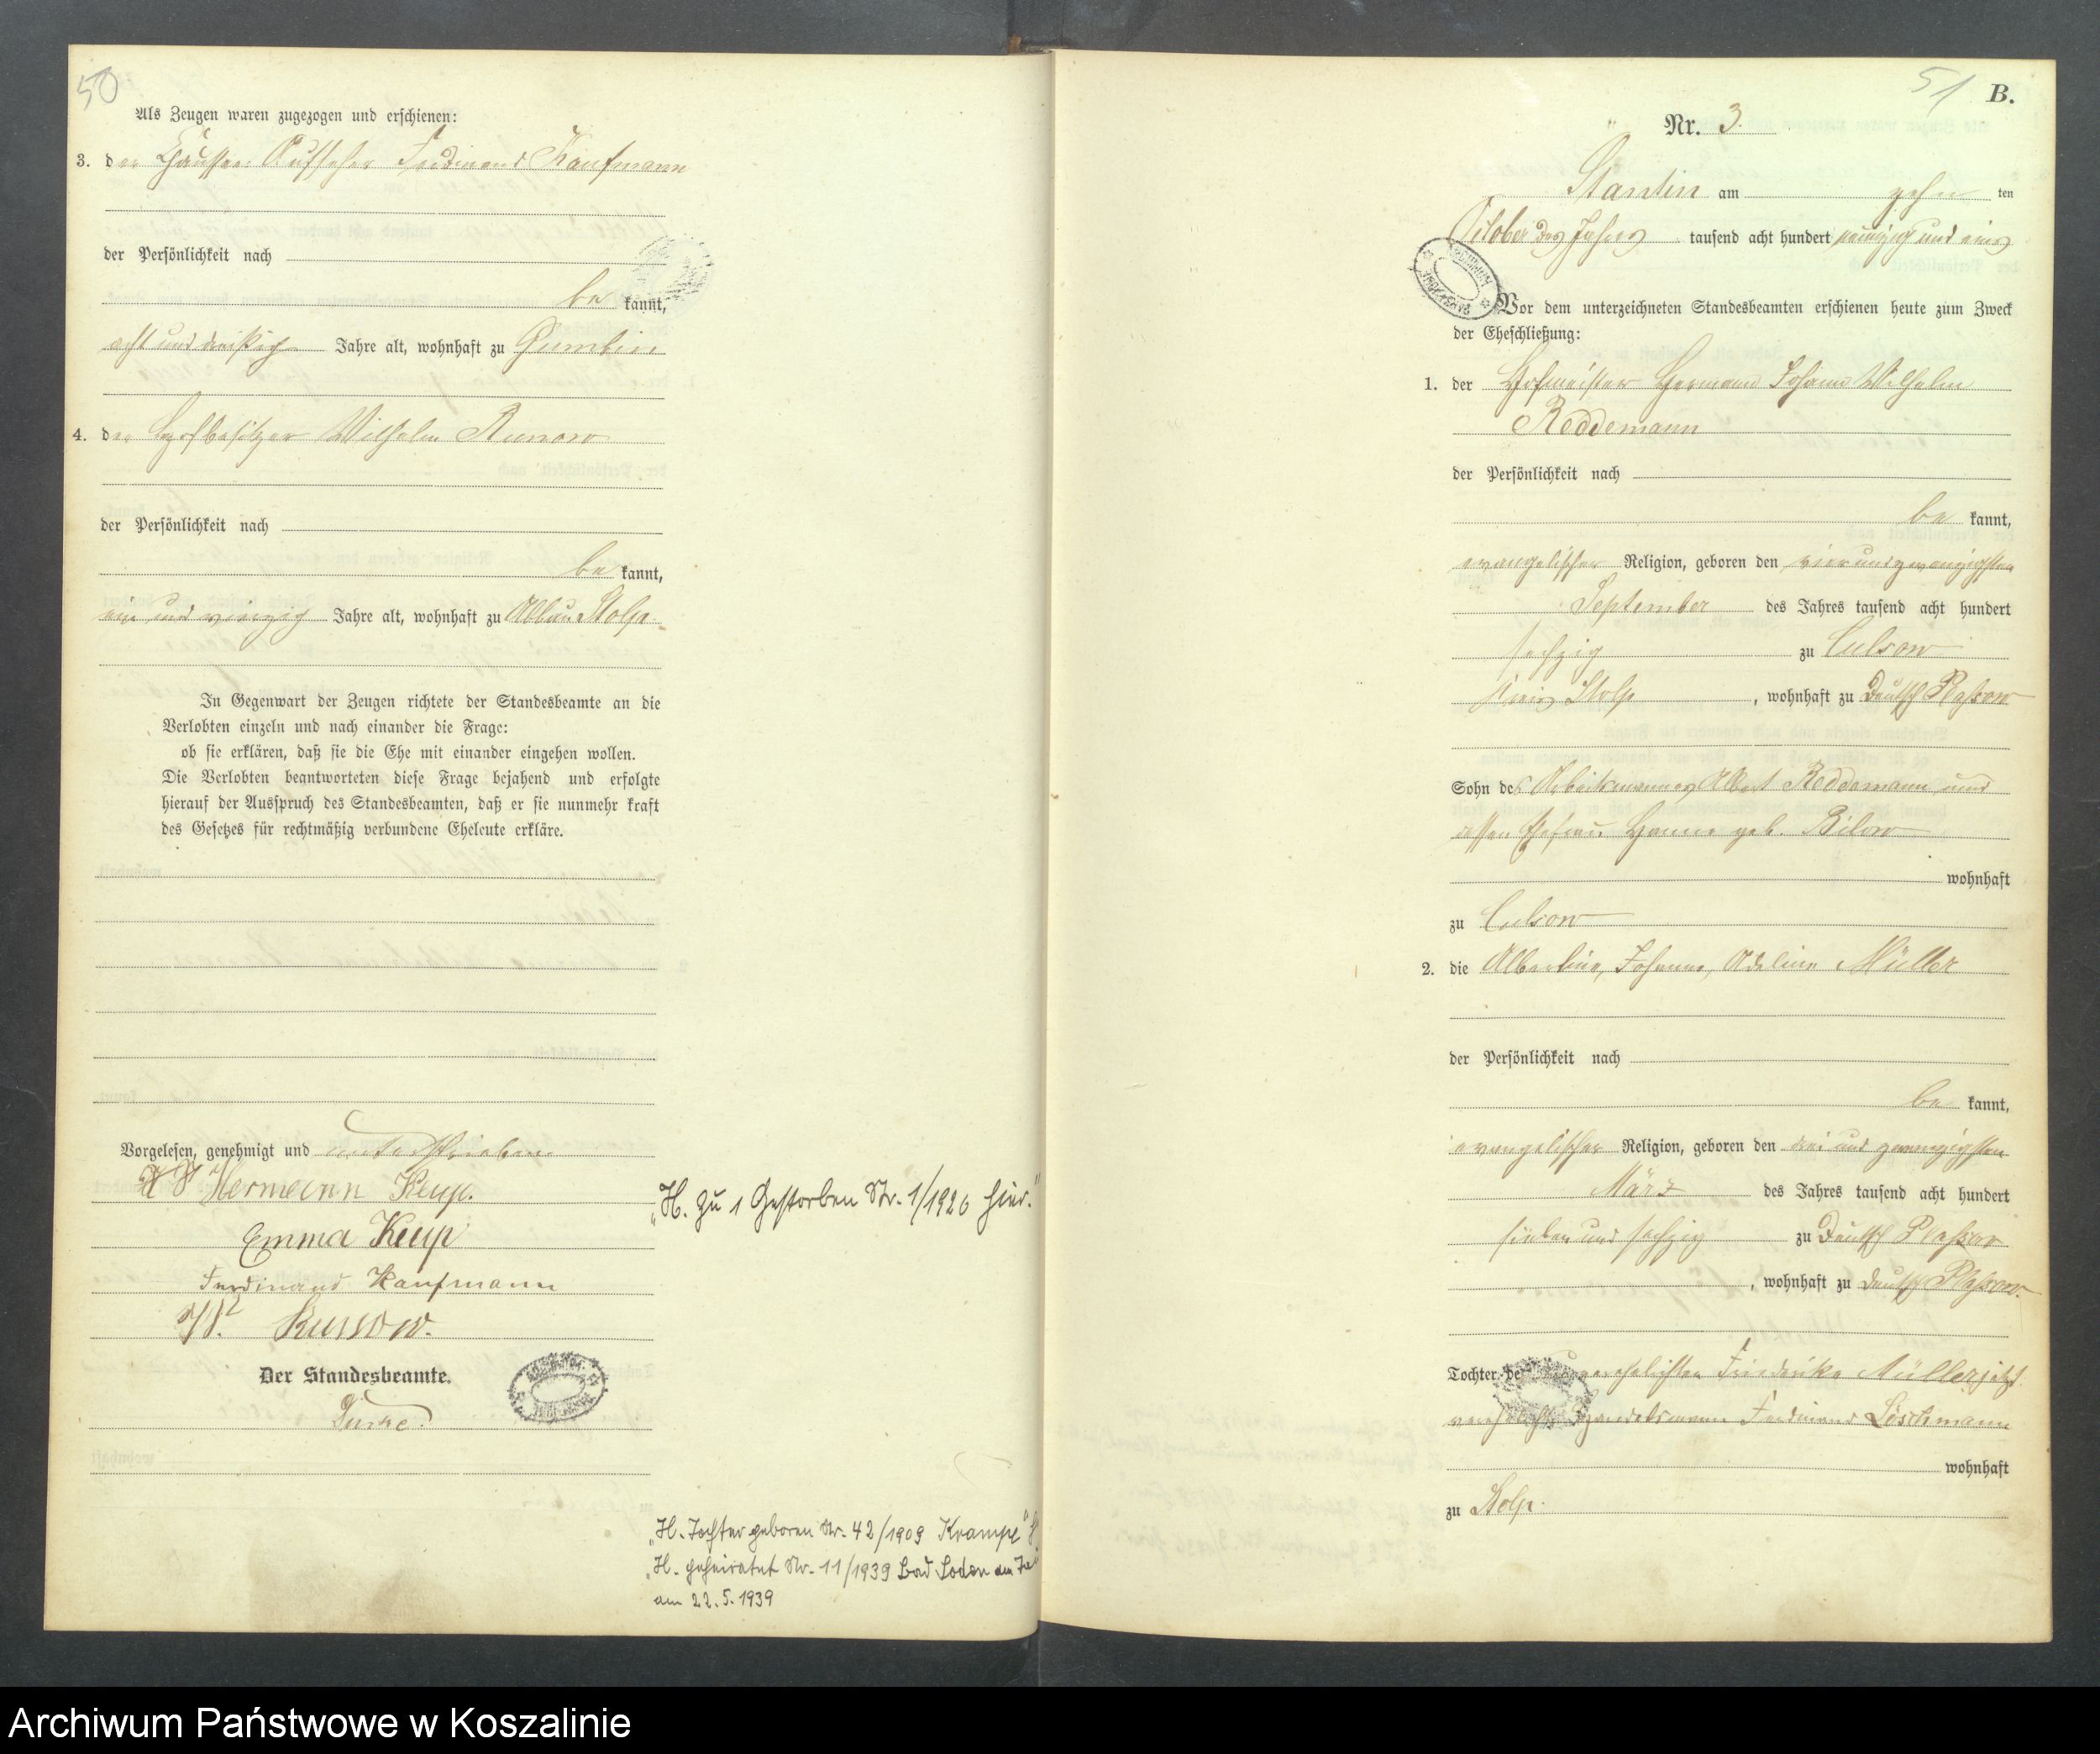 50
Als Zeugen waren zugezogen und erschienen:
3. der Chaussee Aufseher Ferdinand Kaufmann
der Persönlichkeit nach
be kannt,
acht und dreißig Jahre alt, wohnhaft zu Gumbin
4. der Hofbesitzer Wilhelm Russow
der Persönlichkeit nach
be kannt,
ein und vierzig Jahre alt, wohnhaft zu Abbau Stolp
In Gegenwart der Zeugen richtete der Standesbeamte an die
Verlobten einzeln und nach einander die Frage:
ob sie erklären, daß sie die Ehe mit einander eingehen wollen.
Die Verlobten beantworteten diese Frage bejahend und erfolgte
hierauf der Ausspruch des Standesbeamten, daß er sie nunmehr kraft
des Gesetzes für rechtmäßig verbundene Eheleute erkläre.
Vorgelesen, genehmigt und unterschrieben
Hermann Keup.
Emma Keup
Ferdinand Kaufmann
Russow.
Der Standesbeamte.
„H. zu 1 Gestorben Nr. 1/1920 hier."
„H. Tochter geboren Nr. 42/1909 Krampe"
„H. geheiratet Nr. 11/1939 Bad Soden am
am 22.5.1939
51
B.
Nr. 3.
Stantin am zehn ten
October des Jahres tausend acht hundert neunzig und eins
Vor dem unterzeichneten Standesbeamten erschienen heute zum Zweck
der Eheschließung:
1. der Hofmeister Hermann Johann Wilhelm
Reddemann
der Persönlichkeit nach
be kannt,
evangelischer Religion, geboren den vierundzwanzigsten
September des Jahres tausend acht hundert
sechzig zu Culsow
Kreis Stolp, wohnhaft zu Deutsch Plassow
Sohn des Arbeitsmannes Albert Reddemann und
dessen Ehefrau Hanne geb. Bilow
wohnhaft
zu Culsow
2. die Albertine, Johanne, Adeline Müller
der Persönlichkeit nach
be kannt,
evangelischer Religion, geboren den drei und zwanzigsten
März des Jahres tausend acht hundert
sieben und sechzig zu Deutsch Plassow
, wohnhaft zu Deutsch Plassow.
Tochter der unverehelichten Friederike Müller jetzt
verehelichte Handelsmann Ferdinand Löschmann
wohnhaft
zu Stolp.
Archiwum Państwowe w Koszalinie